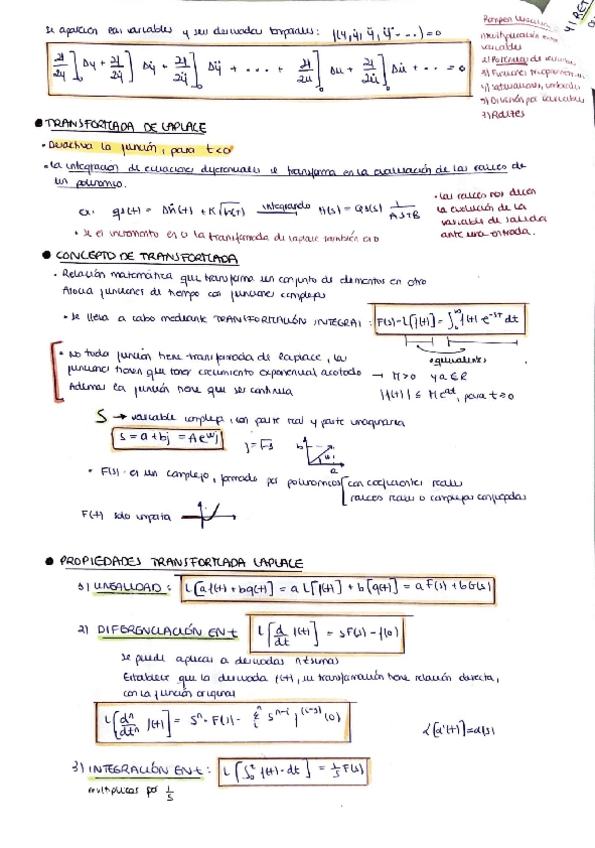 se aparecen las variables y sus derivadas temporales: f(y, ẏ, ÿ, ...) = 0
Rompen linealidad
1) Multiplicación entre variables
2) Potencias de variables
3) Funciones trigonométricas
4) Saturaciones, umbrales
5) División por variables
7) Raíces
∂f/∂y]₀ Δy + ∂f/∂ẏ]₀ Δẏ + ∂f/∂ÿ]₀ Δÿ + ... + ∂f/∂u]₀ Δu + ∂f/∂u̇]₀ Δu̇ + ... = 0
• TRANSFORMADA DE LAPLACE
• Desactiva la función, para t<0
• La integración de ecuaciones diferenciales se transforma en la evaluación de las raíces de
un polinomio.
integrando
• Las raíces nos dicen
la evolución de la
variable de salida
ante una entrada.
• Si el incremento es 0 la transformada de laplace también es 0
• CONCEPTO DE TRANSFORMADA
• Relación matemática que transforma un conjunto de elementos en otro
Asocia funciones de tiempo con funciones complejas
• Se lleva a cabo mediante TRANSFORMACIÓN INTEGRAL: F(s)=L[f(t)] = ∫₀^∞ f(t) e^-st dt
equivalentes
• No toda función tiene transformada de laplace, las
funciones tienen que tener crecimiento exponencial acotado → M>0 y a∈R
Además la función tiene que ser continua |f(t)| ≤ Me^at, para t≥0
S → variable compleja, con parte real y parte imaginaria
s = a+bj = Ae^wj
b
a
• F(s) es un complejo, formado por polinomios [con coeficientes reales
raíces reales o complejas conjugadas
F(t) solo importa
• PROPIEDADES TRANSFORMADA LAPLACE
1) LINEALIDAD: L[af(t)+bg(t)] = a L[f(t)] + b[g(t)] = a F(s) + bG(s)
2) DIFERENCIACIÓN EN t L[d/dt f(t)] = sF(s) - f(0)
se puede aplicar a derivadas n-ésimas
Establece que la derivada f(t), su transformación tiene relación directa,
con la función original
L[dⁿ/dtⁿ f(t)] = Sⁿ · F(s) - Σ sⁿ⁻ⁱ f⁽ⁱ⁻¹⁾(0)
3) INTEGRACIÓN EN t: L[∫₀ᵗ f(t)·dt] = 1/s F(s)
multiplicas por 1/s